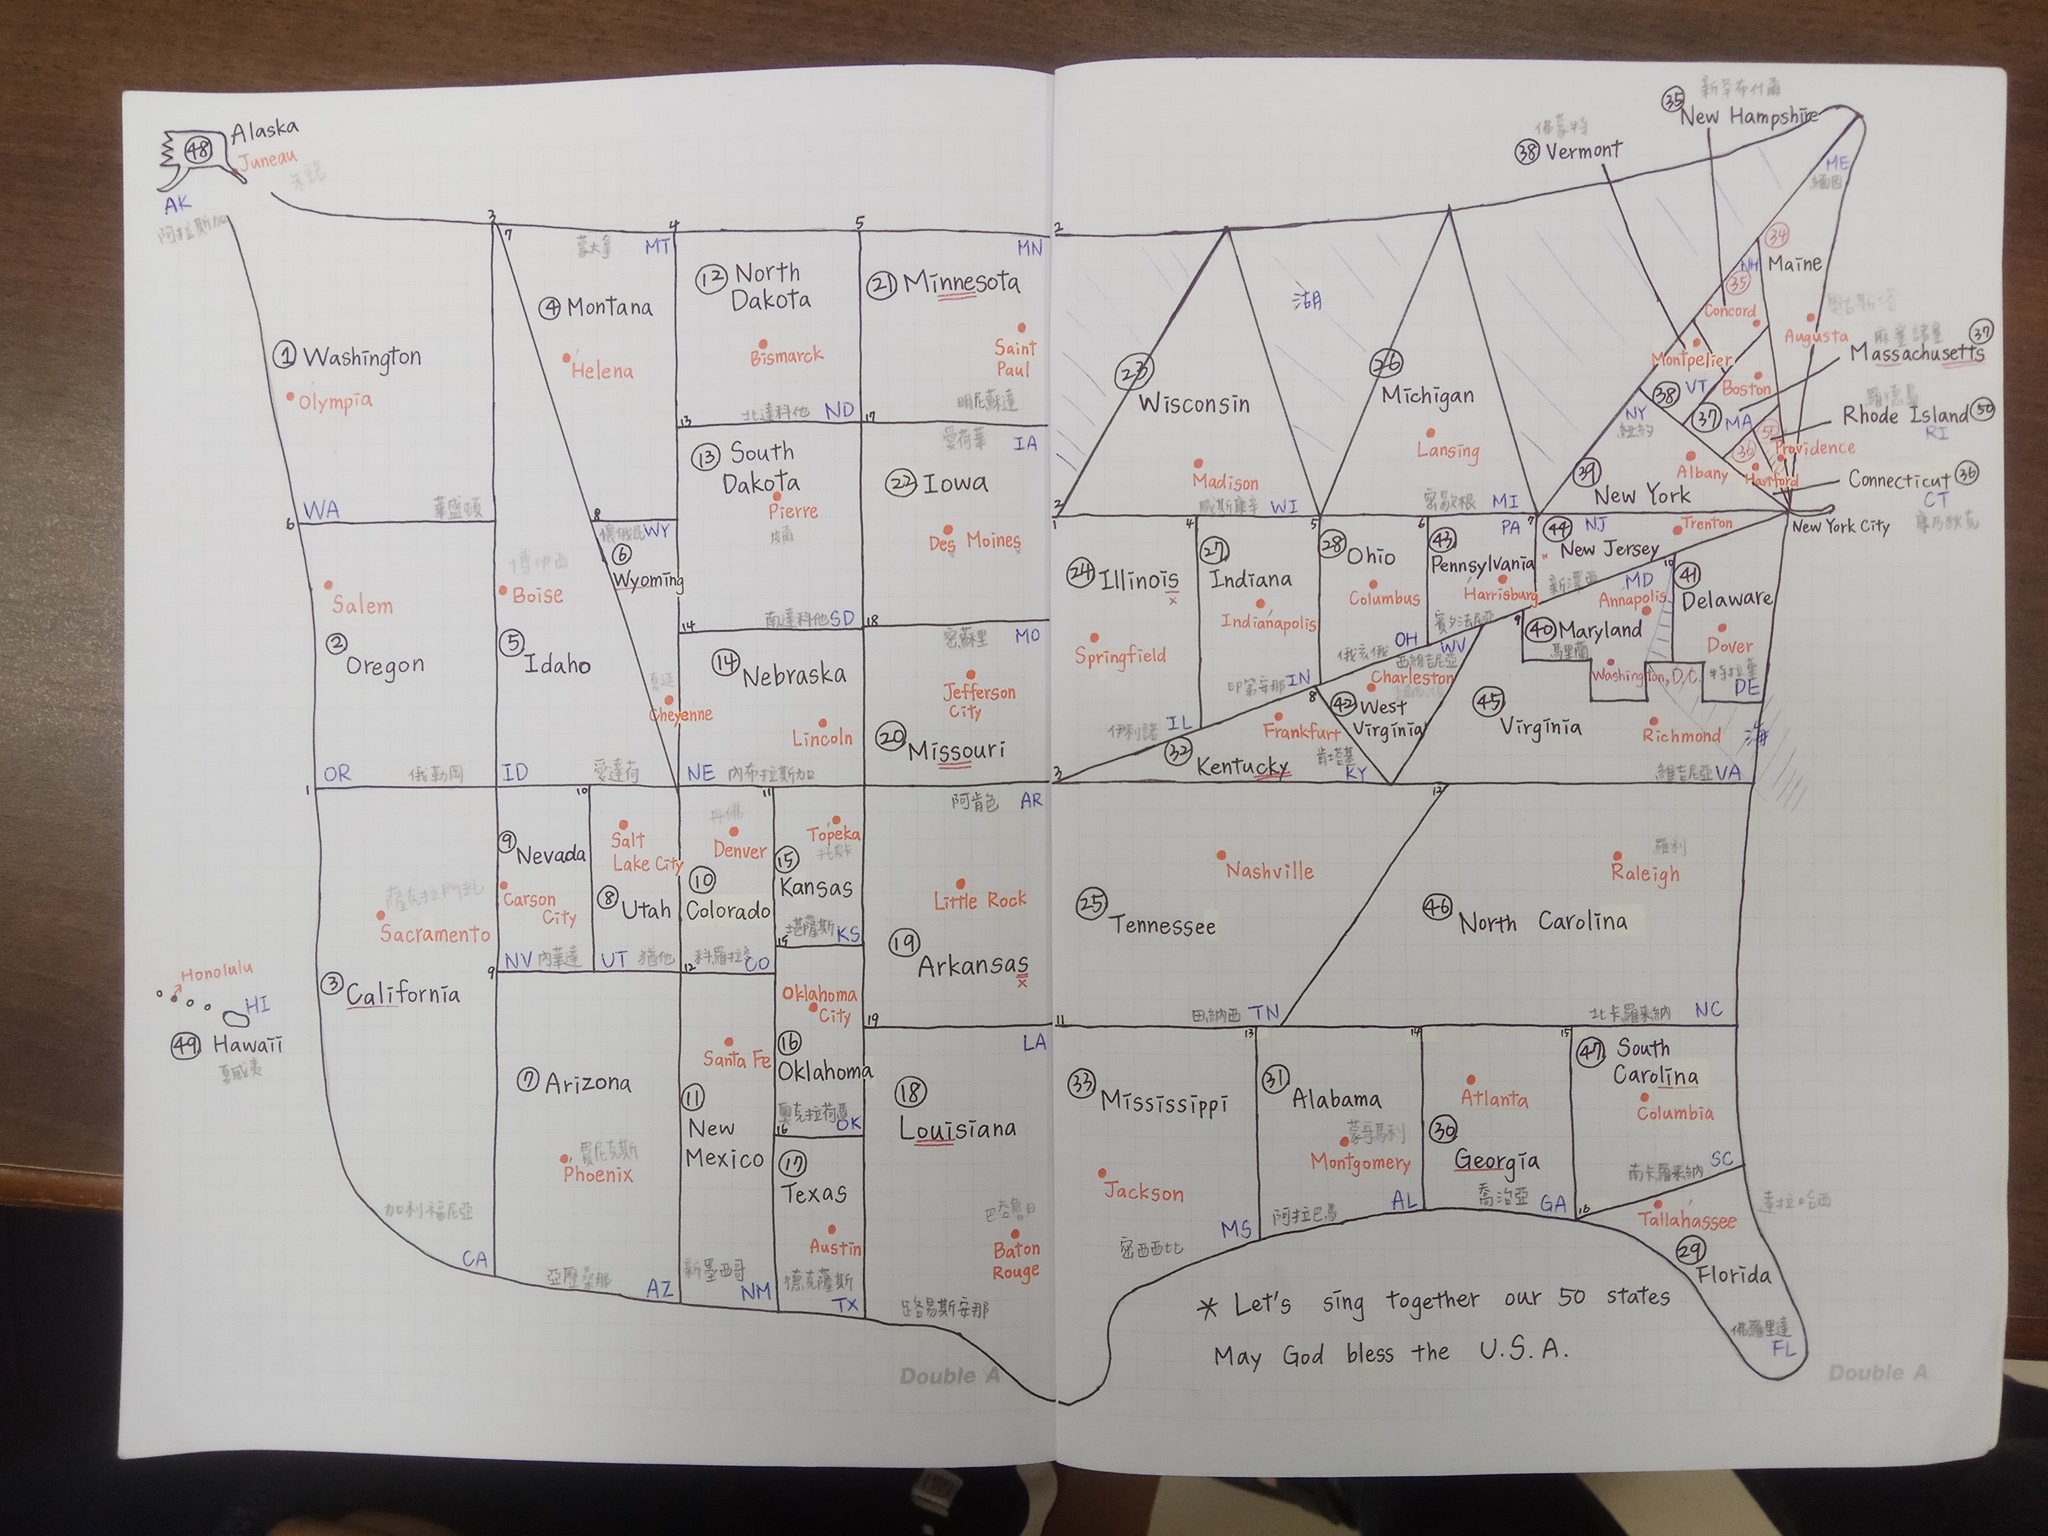 48
Alaska
Juneau
朱諾
AK
阿拉斯加
1 Washington
Olympia
WA 華盛頓
Salem
2 Oregon
OR 俄勒岡
博伊西
Boise
5 Idaho
ID 愛達荷
蒙大拿 MT
4 Montana
Helena
懷俄明 WY
6
Wyoming
夏延
Cheyenne
12 North
Dakota
Bismarck
北達科他 ND
13 South
Dakota
Pierre
皮爾
南達科他 SD
14
Nebraska
Lincoln
NE 內布拉斯加
MN
21 Minnesota
Saint
Paul
明尼蘇達
愛荷華 IA
22 Iowa
Des Moines
密蘇里 MO
Jefferson
City
20
Missouri
薩克拉門托
Sacramento
3 California
加利福尼亞
CA
Honolulu
HI
49 Hawaii
夏威夷
9 Nevada
Carson
City
NV 內華達
Salt
Lake City
8 Utah
UT 猶他
丹佛
Denver
10
Colorado
科羅拉多
CO
Topeka
15
Kansas
堪薩斯 KS
阿肯色 AR
Little Rock
19
Arkansas
7 Arizona
鳳尼克斯
Phoenix
亞歷桑那 AZ
Santa Fe
11
New
Mexico
新墨西哥
NM
Oklahoma
City
16
Oklahoma
奧克拉荷馬
OK
17
Texas
Austin
德克薩斯
TX
LA
18
Louisiana
Baton
Rouge
路易斯安那
Double A
湖
23
Wisconsin
Madison
威斯康辛 WI
26
Michigan
Lansing
密歇根 MI
新罕布什爾
35
New Hampshire
佛蒙特
38 Vermont
ME
緬因
34
Maine
NH
35
Concord
Augusta
麻薩諸塞 37
Massachusetts
Montpelier
38 VT
Boston
37 MA
羅德島
Rhode Island 50
RI
50
Providence
36
Hartford
Connecticut 36
CT
康乃狄克
NY
紐約
39
New York
Albany
New York City
24 Illinois
Springfield
伊利諾 IL
27
Indiana
Indianapolis
印第安那 IN
28 Ohio
Columbus
OH
俄亥俄
PA
43
Pennsylvania
Harrisburg
賓夕法尼亞
44 NJ
Trenton
New Jersey
新澤西
MD
Annapolis
40 Maryland
馬里蘭
Washington, D.C.
41
Delaware
Dover
特拉華
DE
WV
西維吉尼亞
Charleston
42 West
Virginia
Frankfurt
32
Kentucky
肯塔基
KY
45
Virginia
Richmond
海
維吉尼亞 VA
Nashville
25
Tennessee
田納西 TN
羅利
Raleigh
46
North Carolina
北卡羅來納 NC
33
Mississippi
Jackson
MS
密西西比
31
Alabama
蒙哥馬利
Montgomery
阿拉巴馬 AL
Atlanta
30
Georgia
喬治亞 GA
47 South
Carolina
Columbia
SC
南卡羅來納
Tallahassee 達拉哈西
29
Florida
佛羅里達
FL
* Let's sing together our 50 states
May God bless the U.S.A.
Double A